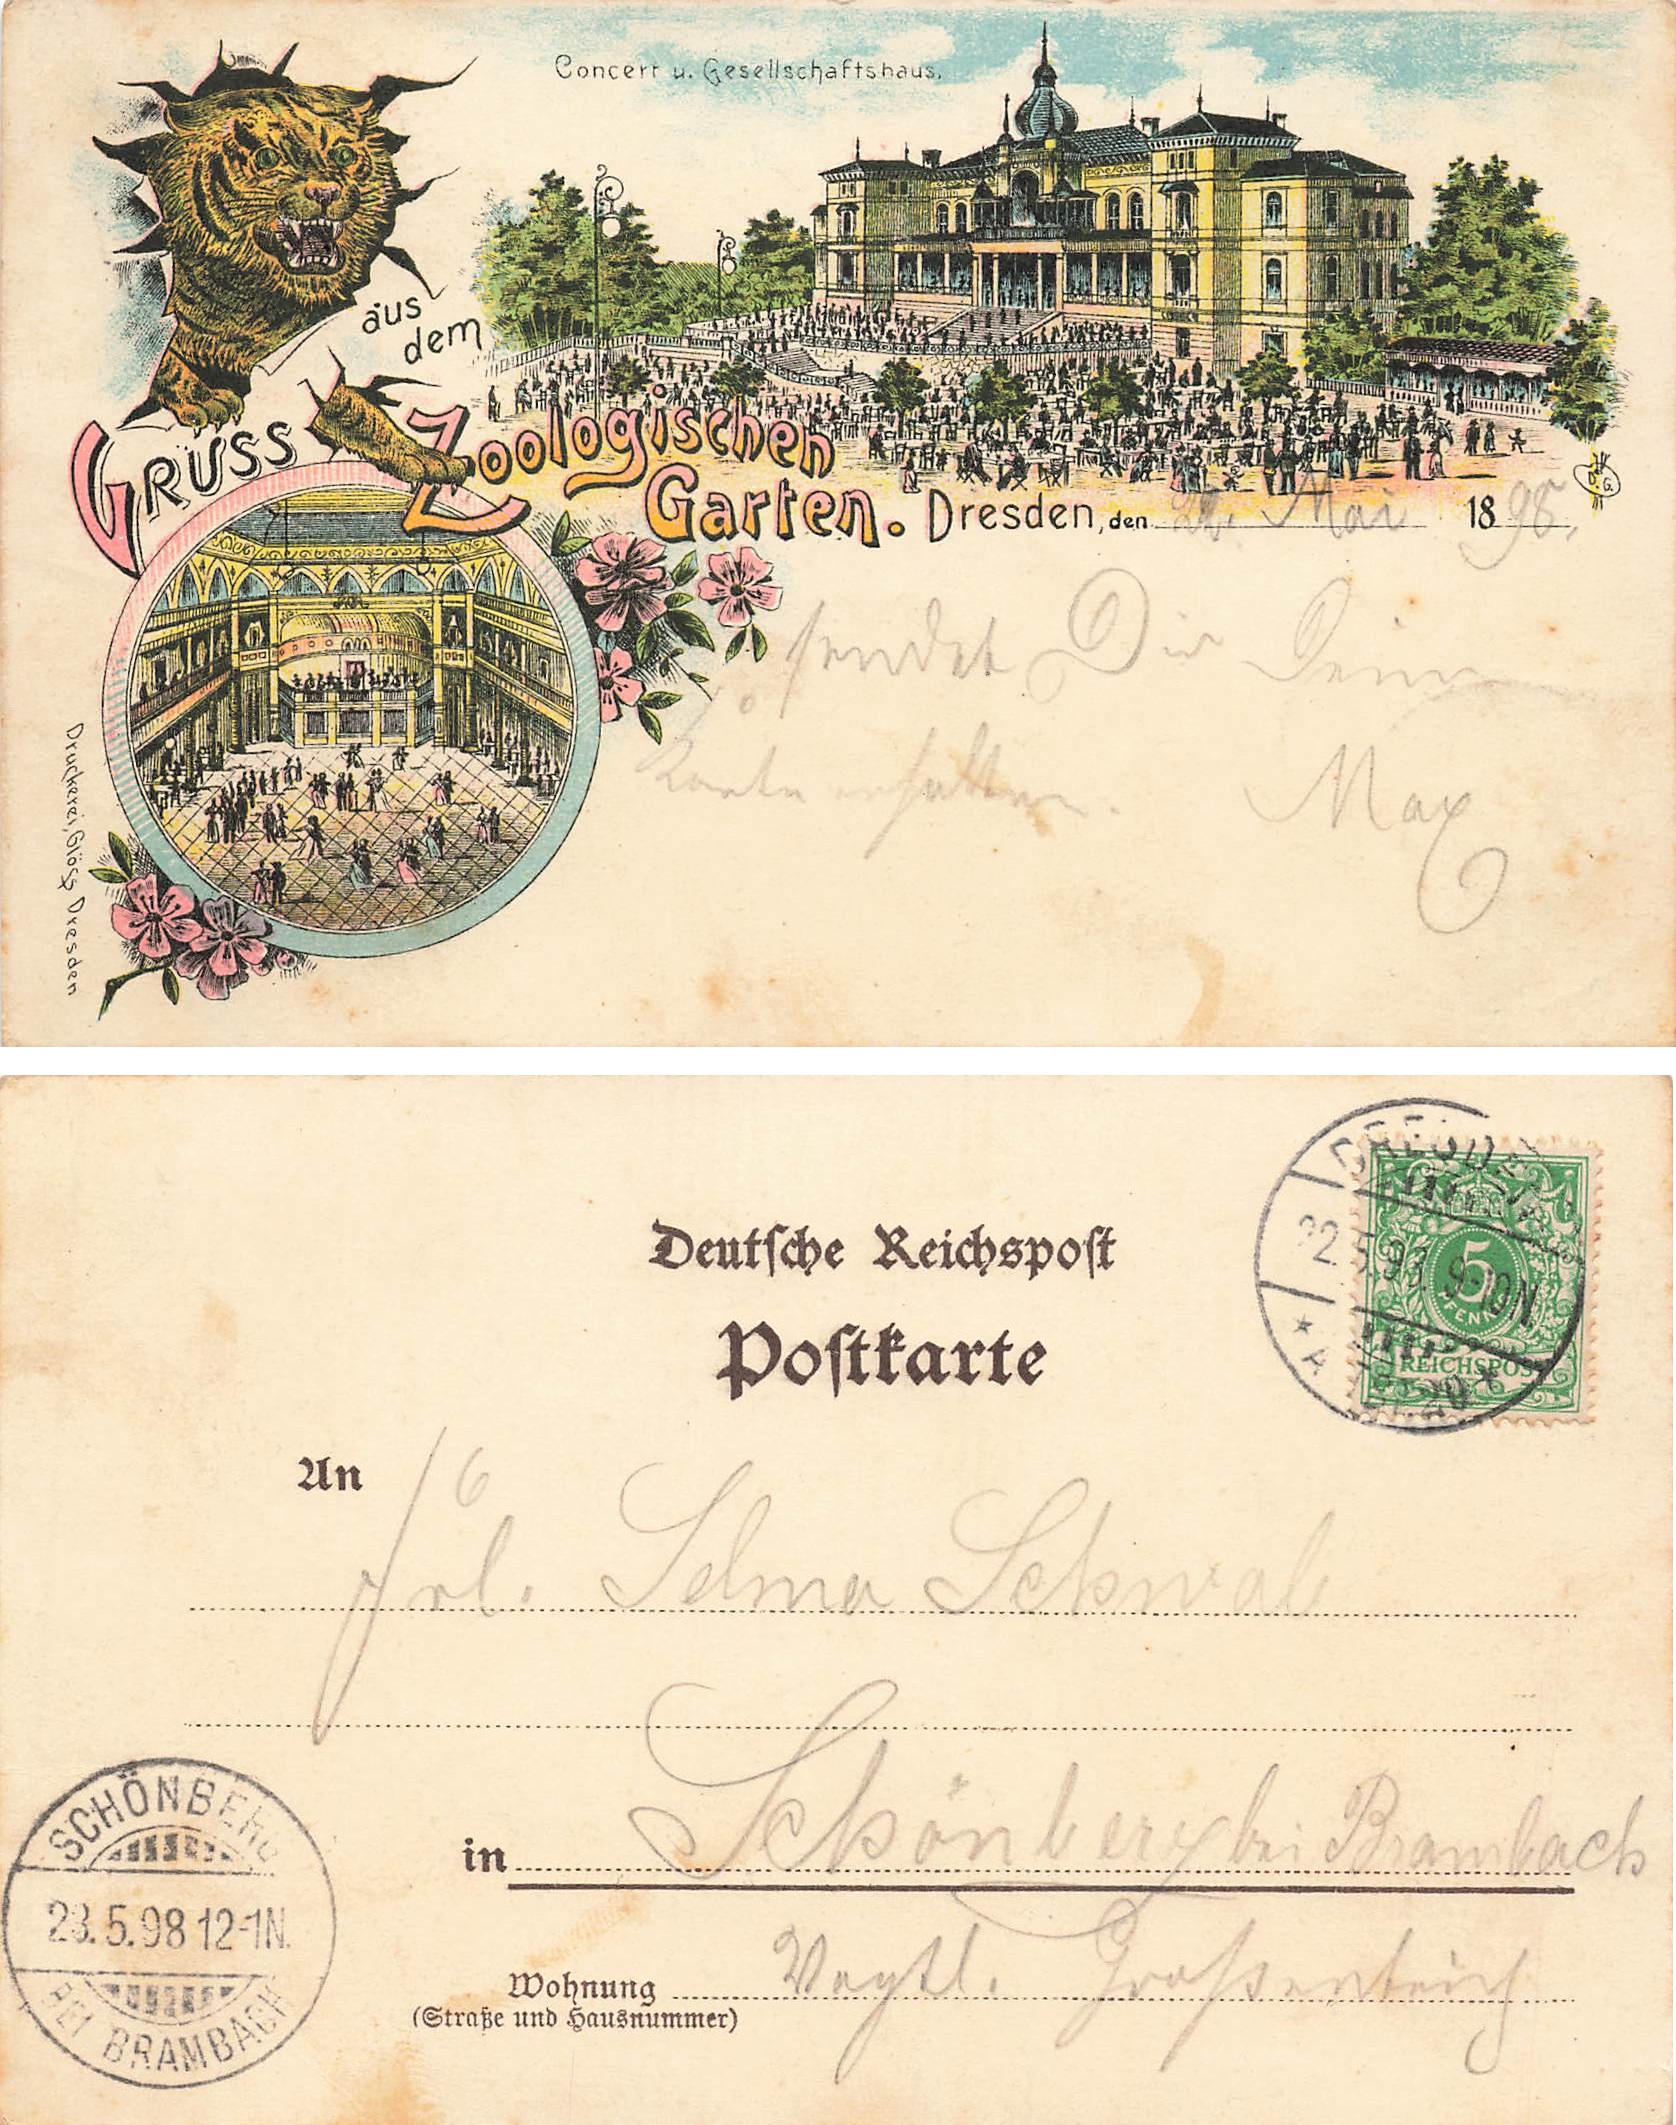 Concert u. Gesellschaftshaus.
GRUSS aus dem
Zoologischen
Garten. Dresden, den 22. Mai 1898.
sendet Dir Dein
Karte erhalten. Max
Druckerei, Glöss Dresden
G.
DRESDEN
22.5.98. 9-10N
* ALTST. *
5
PFENNIG
REICHSPOST
Deutsche Reichspost
Postkarte
An
Frl. Selma Schwab
in Schönberg bei Brambach
Wohnung Vogtl.
(Straße und Hausnummer)
SCHÖNBERG
23.5.98 12-1N.
BEI BRAMBACH